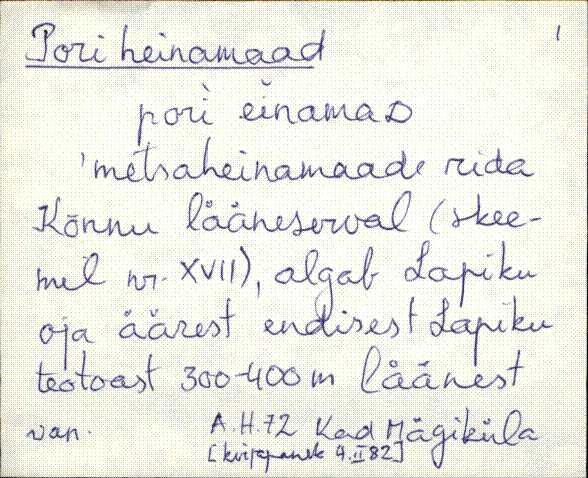 Pori heinamaad 1
pori èìnamaD
'metsaheinamaade rida
Kõnnu lääneserval (skee-
mel nr. XVII), algab Lapiku
oja äärest endisest Lapiku
teotoast 300-400m läänest
van. A.H.72 Kad Mägiküla
[kirjapanek 4.II 82]